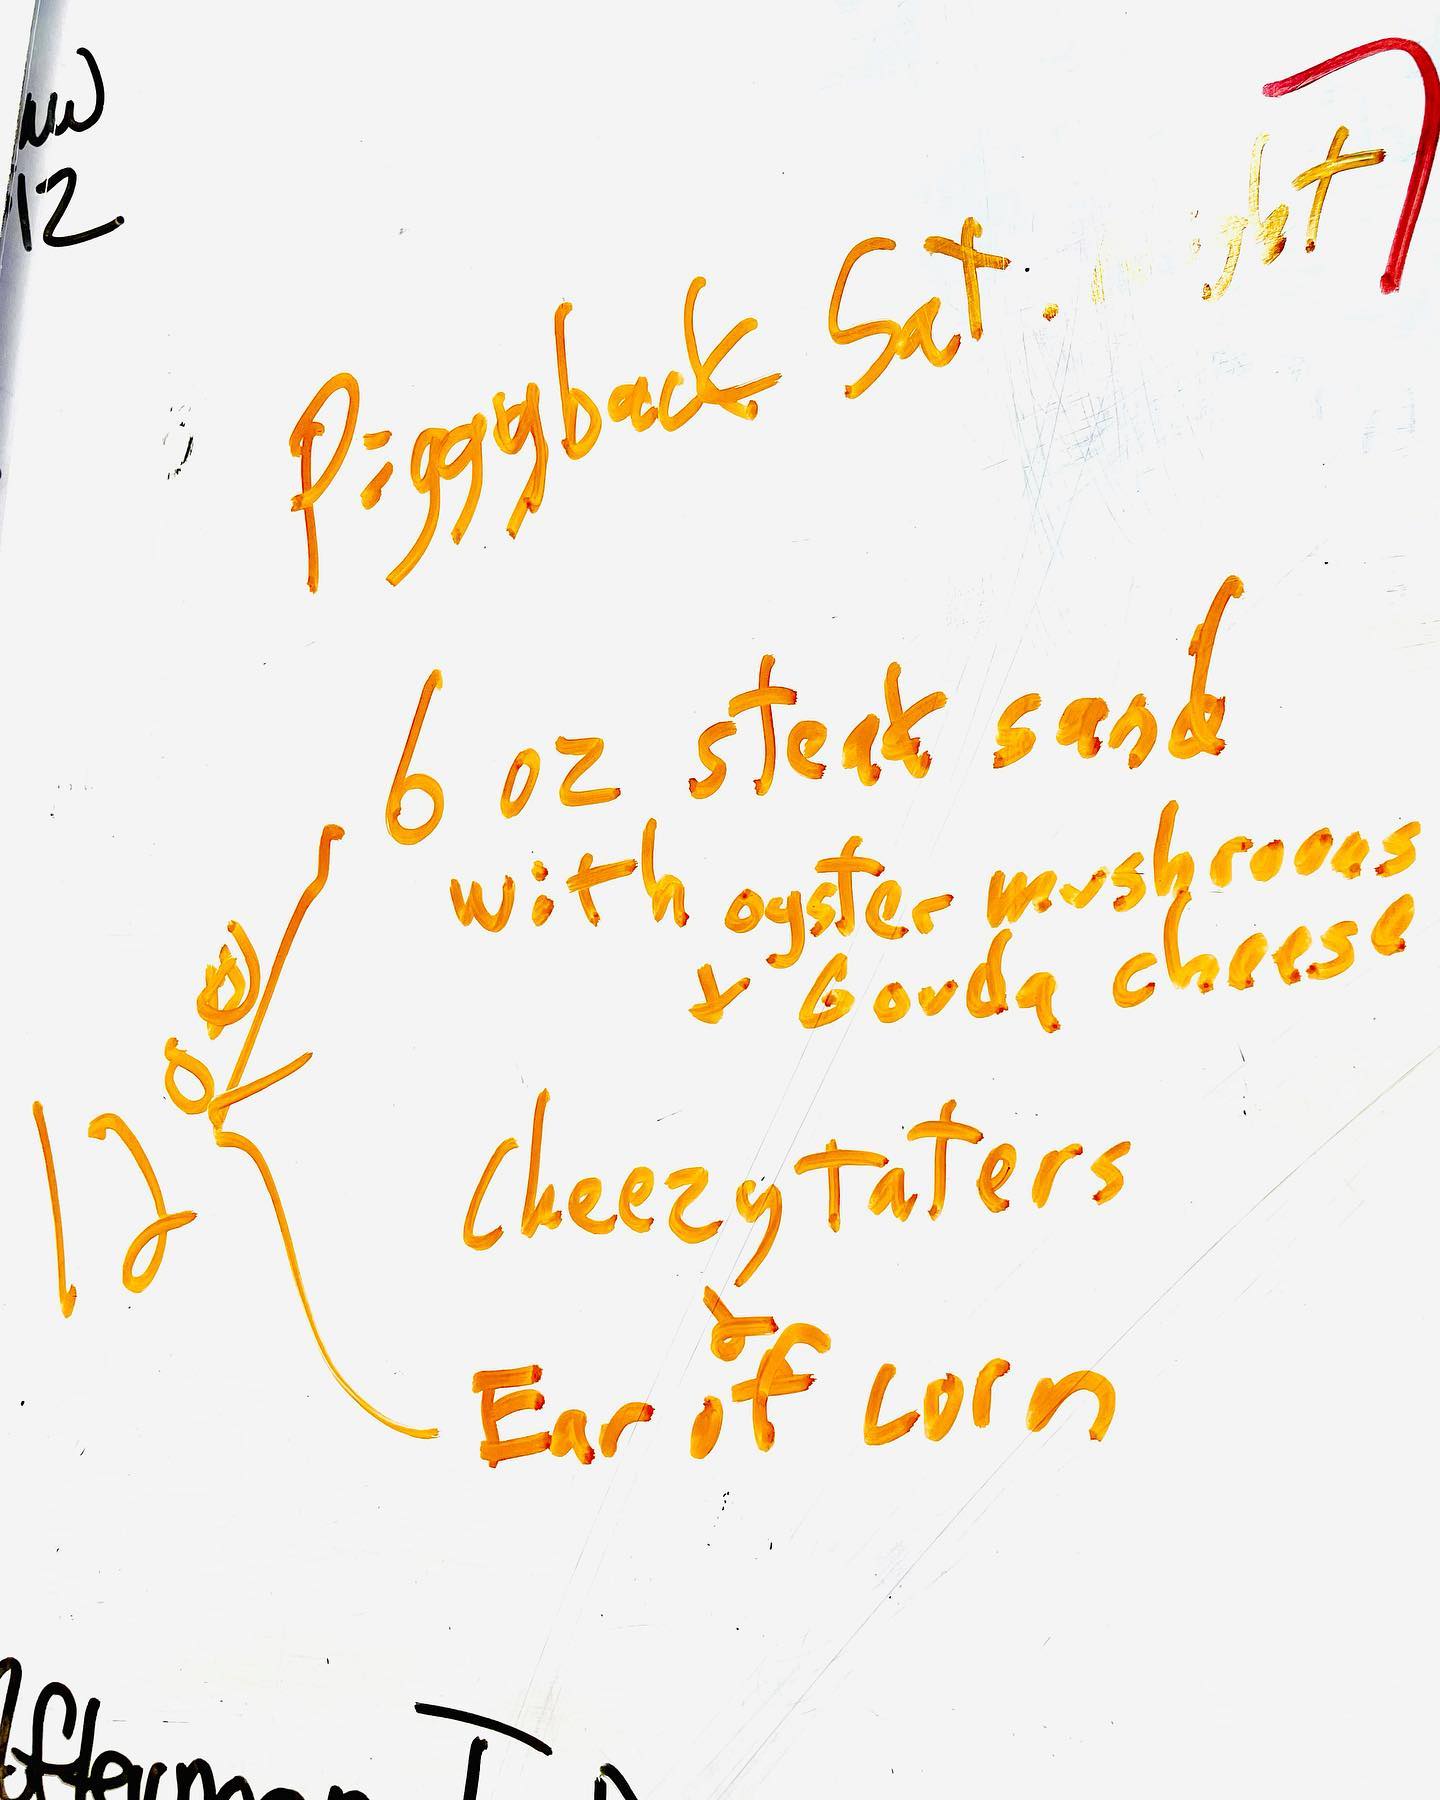 12
Piggyback Sat. night
6 oz steak sand
with oyster mushrooms
+ Gouda cheese
12 00
Cheezy taters
&
Ear of corn